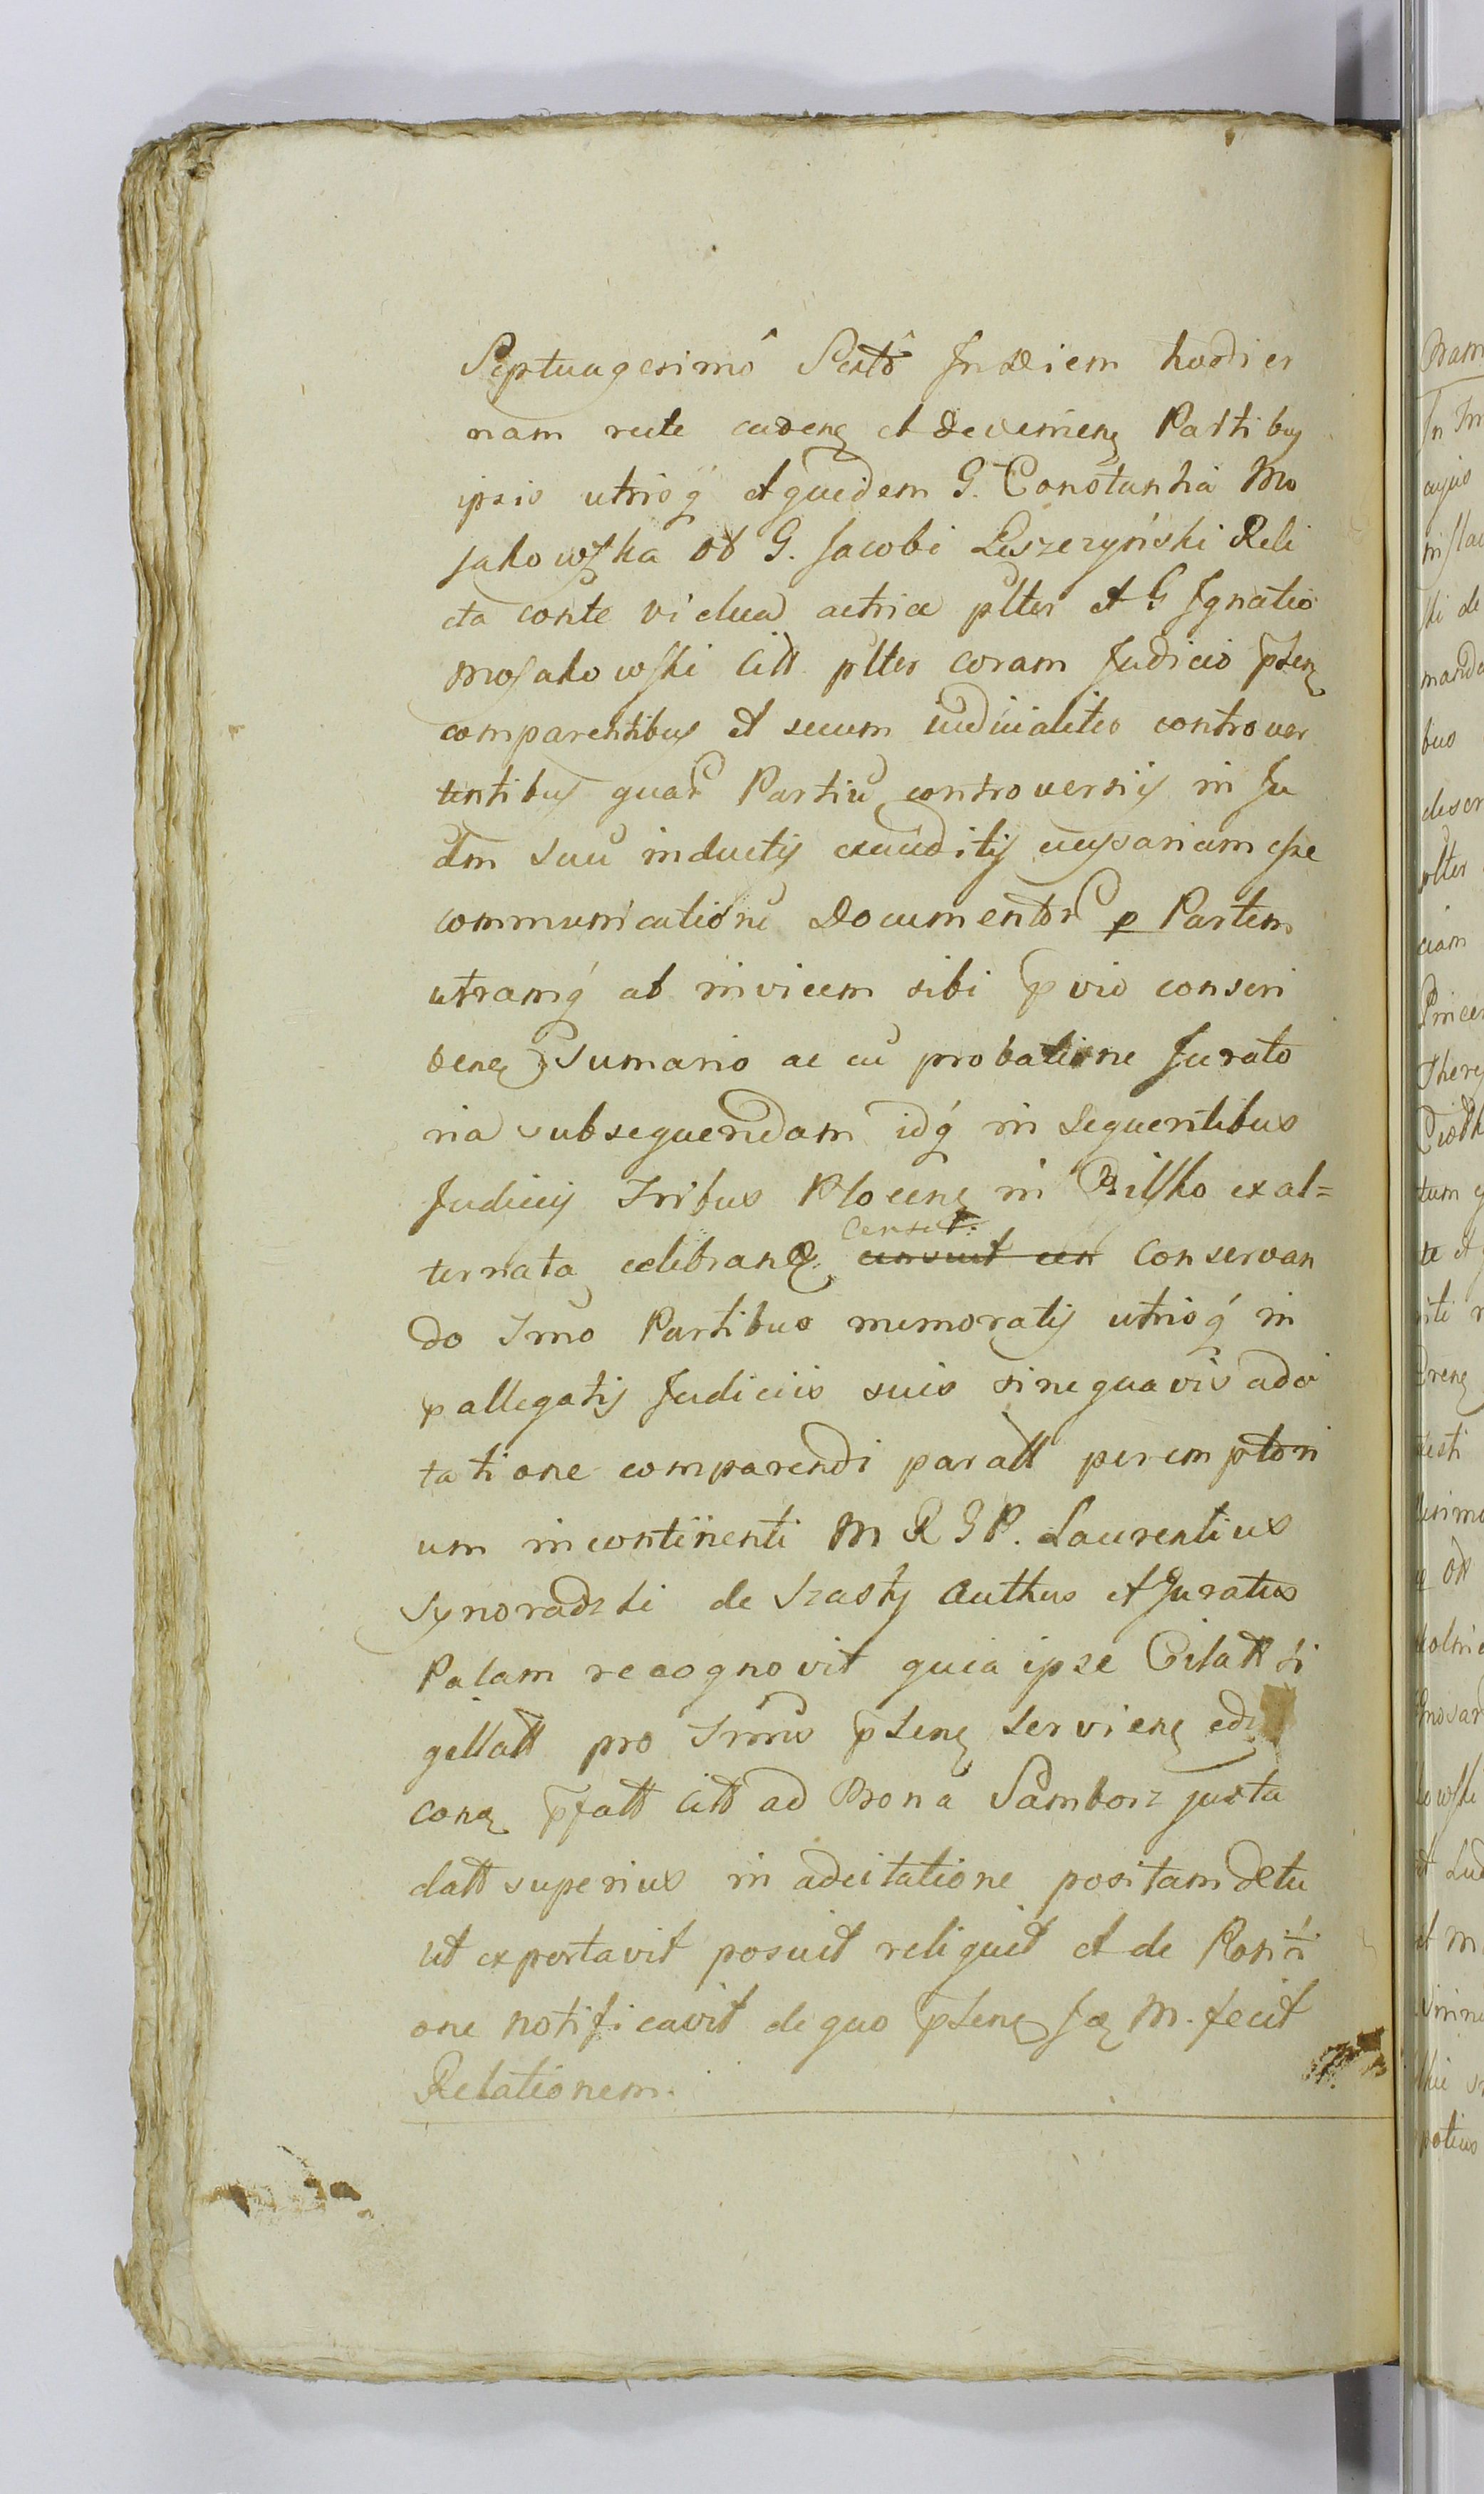 Septuagesimô Sextô In Diem hodier
nam recte cadeng et deveniens Partibus
ipsis utrisq et quidem G. Constantia Mo
sakowska olÌ G. Jacobi Leszczyński Reli
cta conte vidua actrice plter et G Ignatio
Mosakowski Citt plter coram Judicio psen
comparentibus et secum iudicialiter controver
tentibus quar Partiu controversiis in Ju
dm suu inductis exauditis necessariam esse
communicationē Documentor p Partem
utramq ab invicem sibi p vio conscri
bene Sumario ac cu probatione Jurato
ria subsequendam idq in sequentibus
Judiciis Tribus Plocens in Bilsko ex al=
ternata celebran Censuit. censuit cen Conservan
do Tmo Partibus memoratis utrisq in
pallegatis Judiciis suis sine quavis adci
tatione comparendi paratt peremptori
um incontinenti M R G P. Laurentius
Synoradzki de Szasty Authus et Juratus
Palam recognovit quia ipse Citatt si
gillatt pro Tmis psens serviens
cons pfatt Citt ad Bona Samborz juxta
datt superius in adcitatione positam detu
lit exportavit posuit reliquit et de Positi
one notificavit de quo psens M. fecit
Relationem.